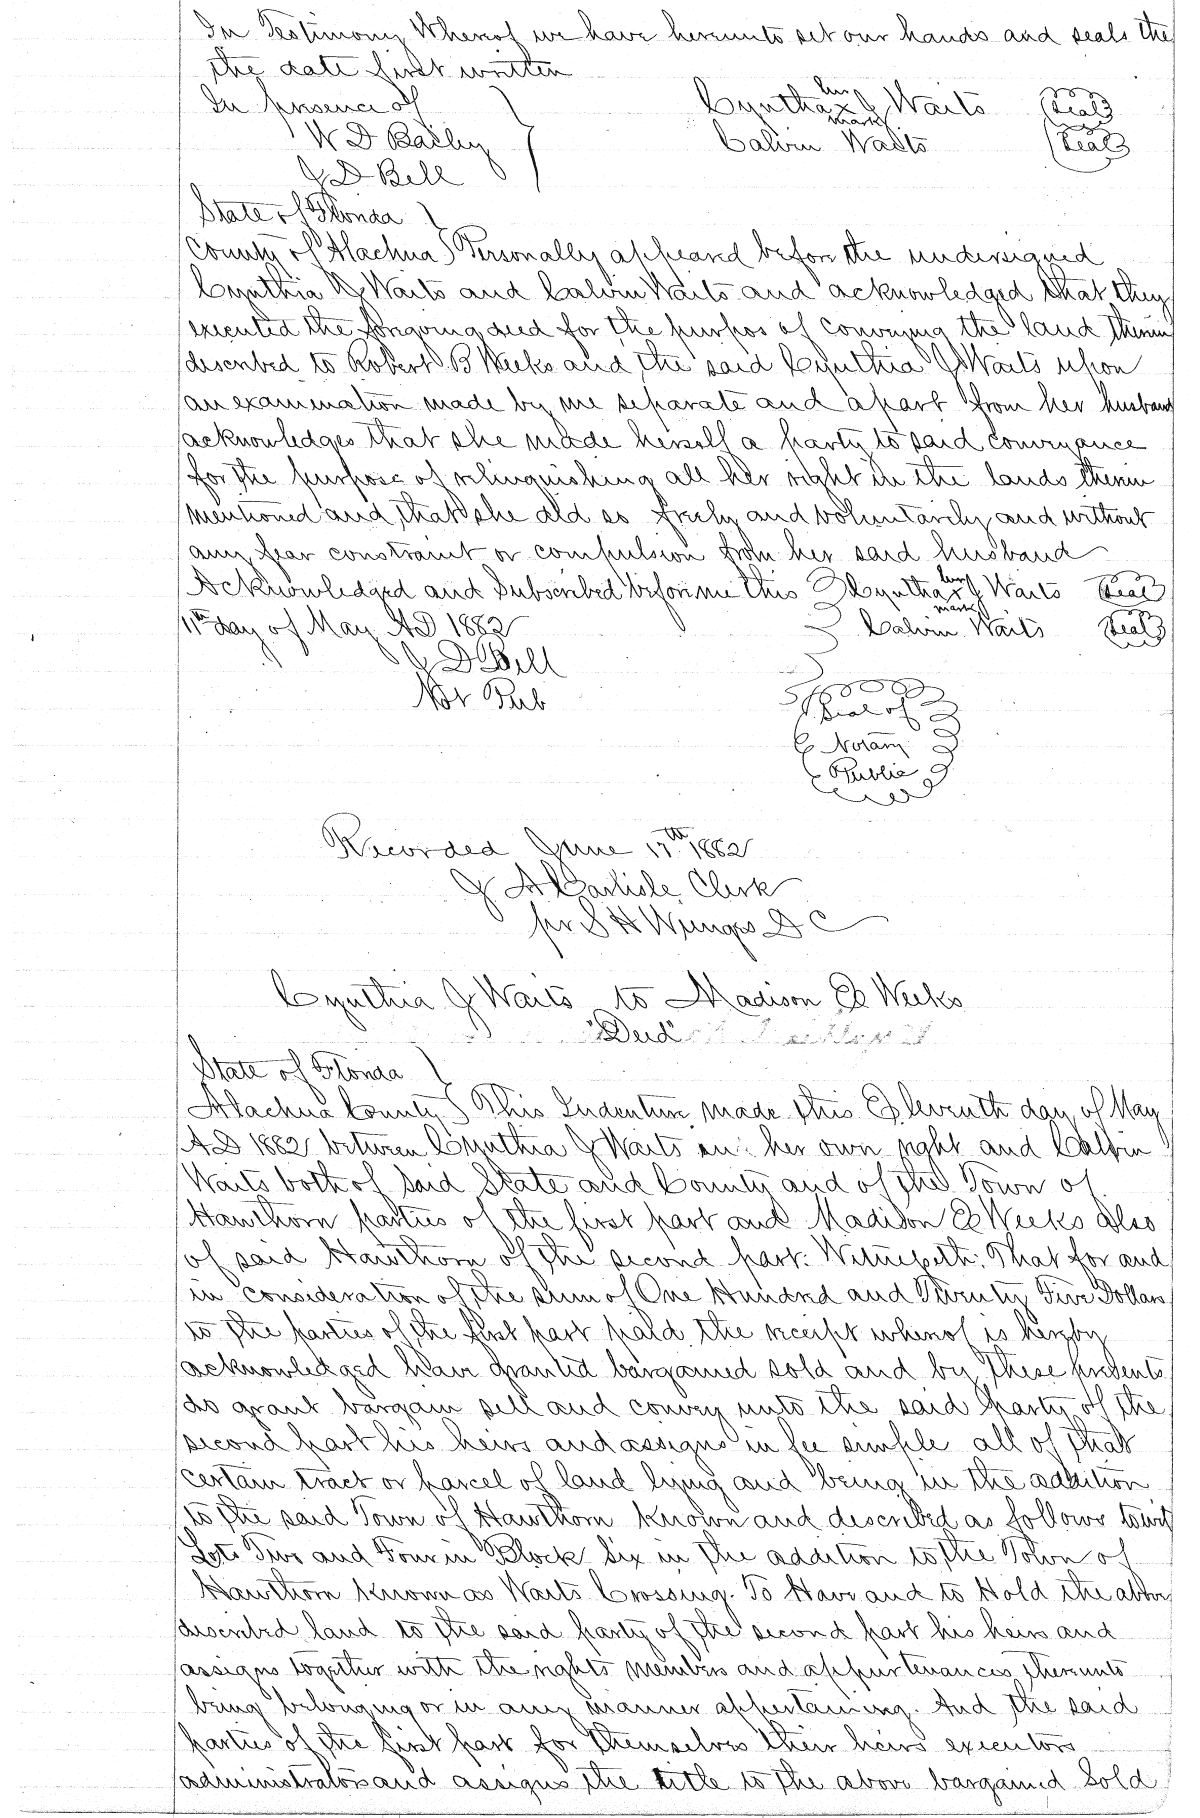 In Testimony Whereof we have hereunto set our hands and seals the
the date first written
In presence of } Cyntha her x mark J Waits (Seal)
W D Bailey Calvin Waits (Seal)
J D Bell
State of Florida }
County of Alachua } Personally appeared before the undersigned
Cynthia J Waits and Calvin Waits and acknowledged that they
executed the forgoing deed for the purpos of conveying the land therin
described to Robert B Weeks and the said Cynthia J Waits upon
an examination made by me separate and apart from her husband
acknowledges that she made herself a party to said conveyance
for the purpose of relinquishing all her right in the lands therin
mentioned and that she did so freely and voluntarily and without
any fear constraint or compulsion from her said husband
Acknowledged and Subscribed before me this } Cyntha her x mark J Waits (Seal)
11th day of May AD 1882 } Calvin Waits (Seal)
J D Bell
Not Pub
Seal of
Notary
Public
Recorded June 17th 1882
J A Carlisle Clerk
pr S H D C
Cynthia J Waits to Madison E Weeks
"Deed"
State of Florida }
Alachua County } This Indenture made this Eleventh day of May
AD 1882 between Cynthia J Waits in her own right and Calvin
Waits both of said State and County and of the Town of
Hawthorn parties of the first part and Madison E Weeks also
of said Hawthorn of the second part: Witnesseth: That for and
in consideration of the sum of One Hundred and Twenty Five Dollars
to the parties of the first part paid the receipt whereof is hereby
acknowledged have granted bargained sold and by these presents
do grant bargain sell and convey unto the said party of the
second part his heirs and assigns in fee simple all of that
certain tract or parcel of land lying and being in the addition
to the said Town of Hawthorn known and described as follows towit
Lots Two and Four in Block Six in the addition to the Town of
Hawthorn known as Waits Crossing. To Have and to Hold the above
described land to the said party of the second part his heirs and
assigns together with the rights members and appurtenances thereunto
being belonging or in any manner appertaining. And the said
parties of the first part for themselves their heirs executors
administrators and assigns the title to the above bargained Sold